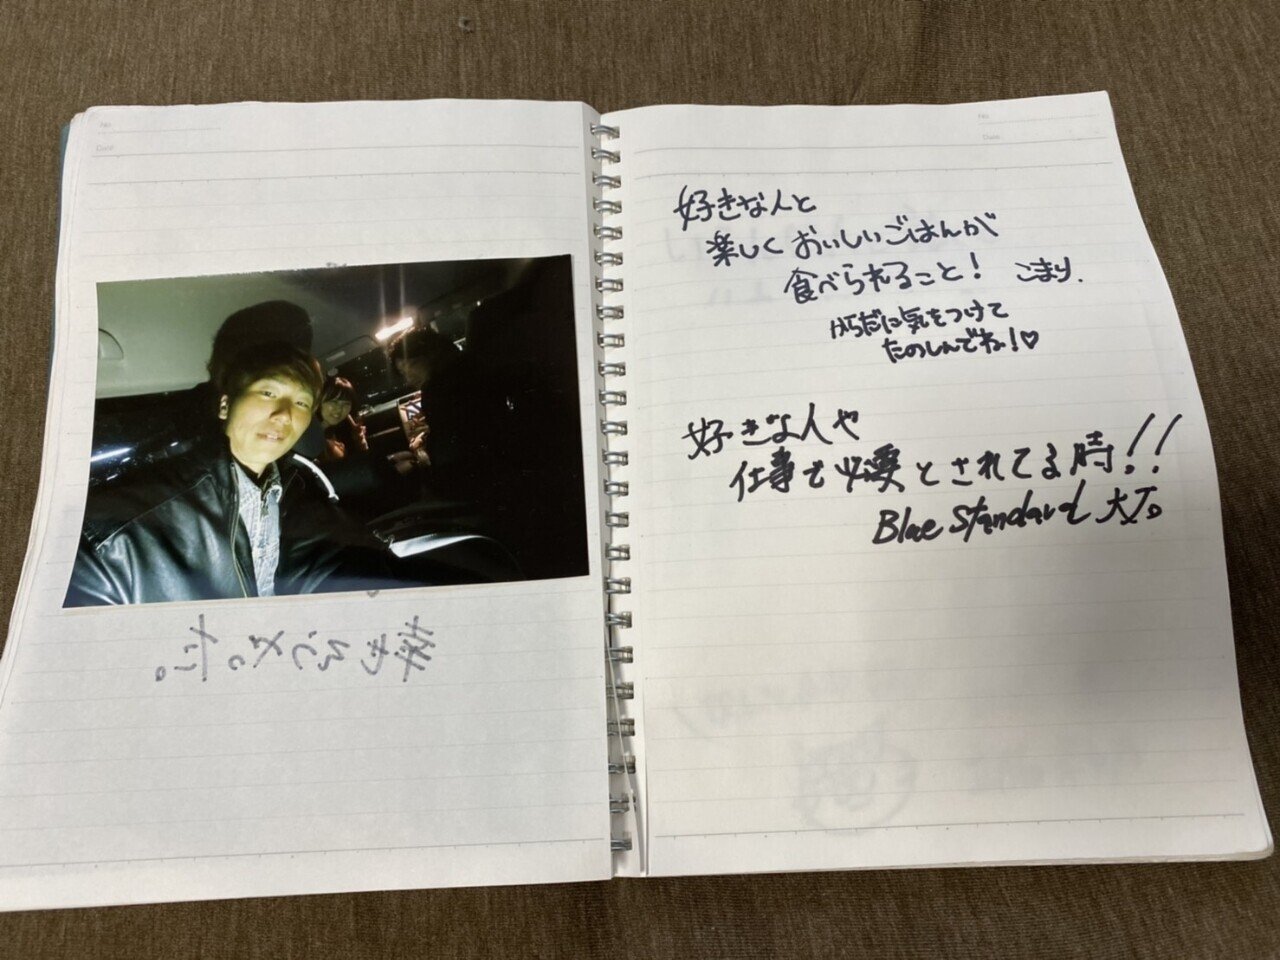 No.
Date
No.
Date
好きな人と
楽しく おいしいごはんが
食べられること! こまり.
からだに気をつけて
たのしんでね!♡
好きな人や
仕事で必要とされてる時!!
Blue Standard 大工。